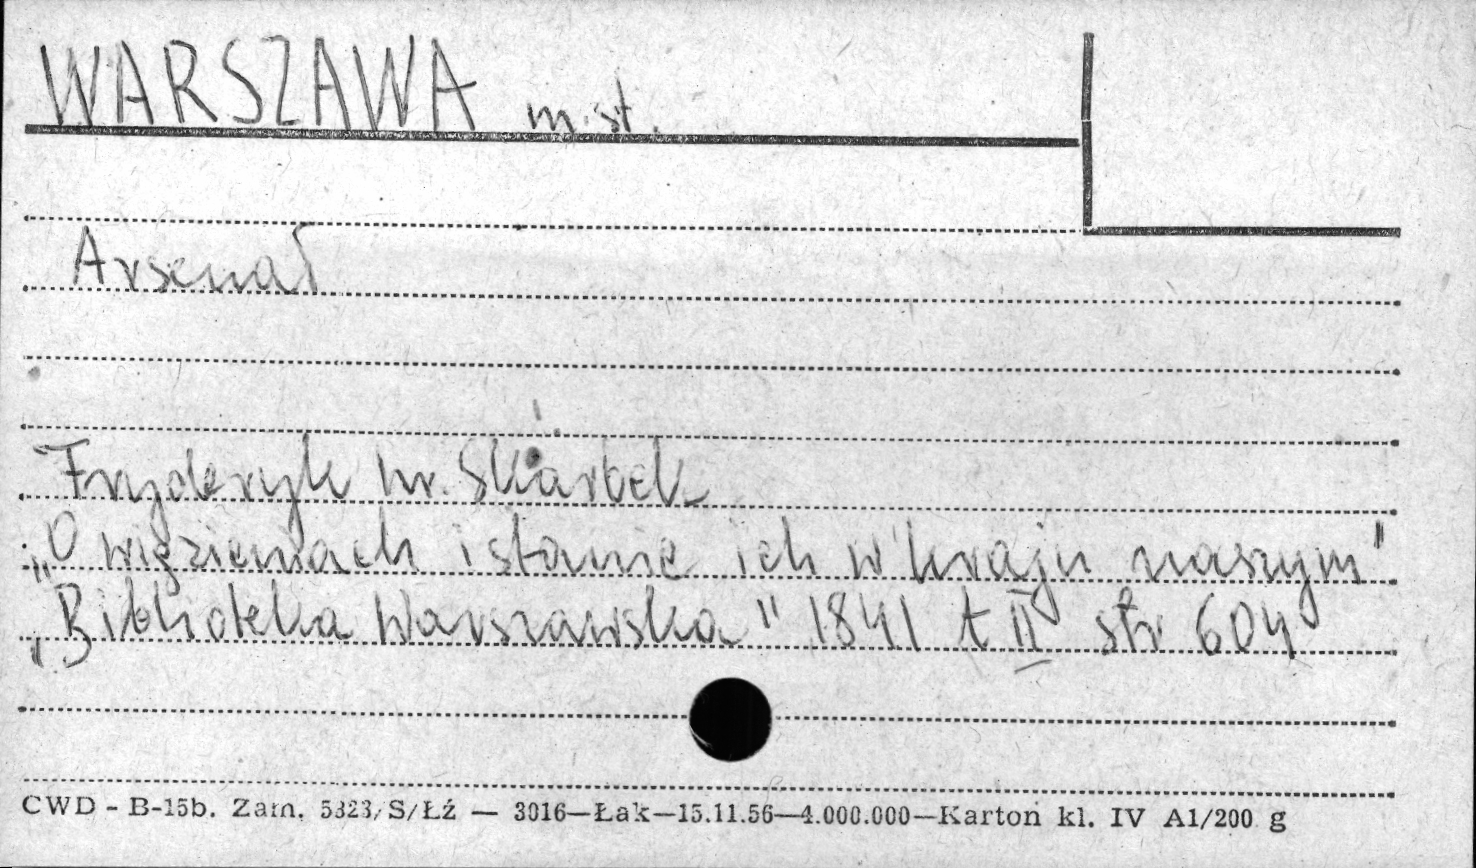 WARSZAWA m.st.
Arsenał
Fryderyk hr. Skarbek
„O więzieniach i stanie ich w kraju naszym"
„Biblioteka Warszawska" 1841 t II str 604
CWD - B-15b. Zam. 5323/S/Łź — 3016—Łak—15.11.56—4.000.000—Karton kl. IV A1/200 g